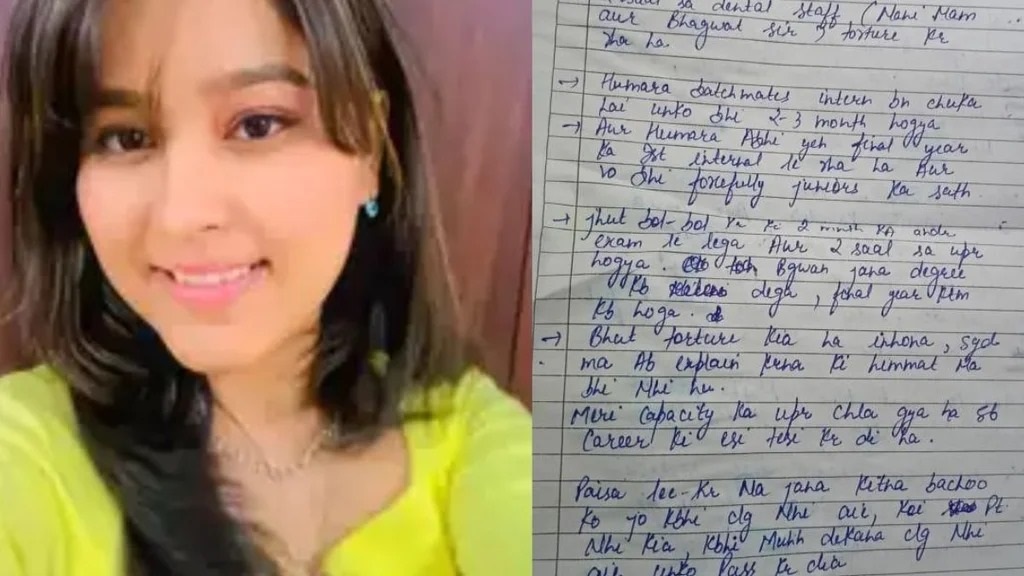 sa dental staff (Mahi Mam
aur Bhagwat sir) torture kr
rha ha
→ Humara batchmates intern bn chuka
hai unko bhi 2-3 month hogya
→ Aur Humara Abhi yeh final year
ka Ist internal le rha ha Aur
vo bhi forcefully juniors ka sath
→ jhut bol-bol kr ki 2 month ka andr
exam le lega Aur 2 saal sa upr
hogya. Bgwan jana degree
kb dega, final year khtm
kb hoga.
→ Bhut torture kia ha inhona, syd
ma Ab explain krna ki himmat ma
bhi Nhi hu.
Meri Capacity ka upr chla gya ha sb
Career ki esi tesi kr di ha.
Paisa lee-kr Na jana kitna bachoo
ko jo kbhi clg Nhi air, koi Pt.
Nhi kia, kbhi Muhh dikhana clg Nhi
air unko Pass kr dia